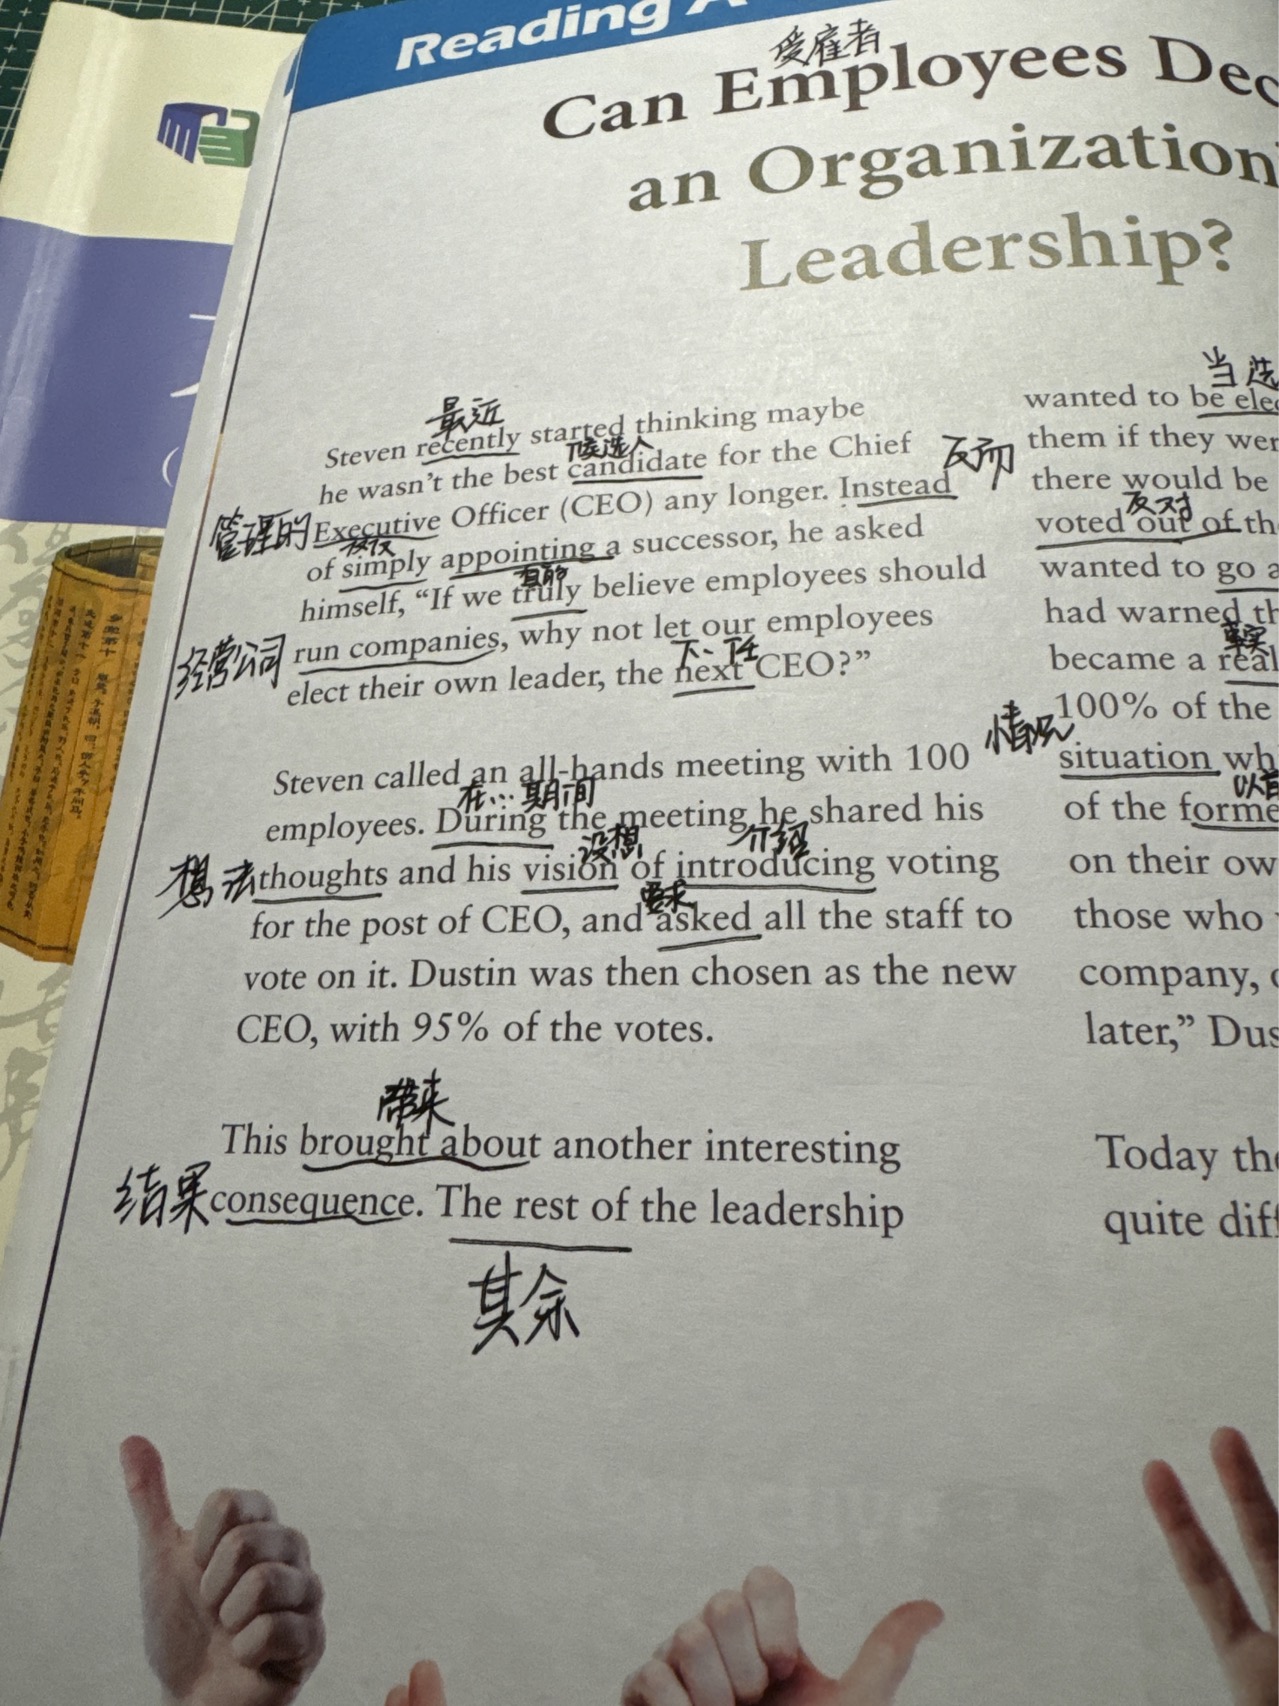 Reading A
受雇者
Can Employees Dec
an Organization
Leadership?
最近
Steven recently started thinking maybe
候选人
he wasn't the best candidate for the Chief
反而
管理的 Executive Officer (CEO) any longer. Instead
仅仅
of simply appointing a successor, he asked
真的
himself, "If we truly believe employees should
经营公司 run companies, why not let our employees
下一任
elect their own leader, the next CEO?"
Steven called an all-hands meeting with 100
在…期间
employees. During the meeting he shared his
设想 介绍
想法 thoughts and his vision of introducing voting
要求
for the post of CEO, and asked all the staff to
vote on it. Dustin was then chosen as the new
CEO, with 95% of the votes.
带来
This brought about another interesting
结果 consequence. The rest of the leadership
其余
当选
wanted to be elec
them if they wer
there would be
反对
voted out of th
wanted to go a
had warned th
became a real
100% of the
情况 situation wh
of the forme
on their ow
those who
company,
later," Dus
Today the
quite diff